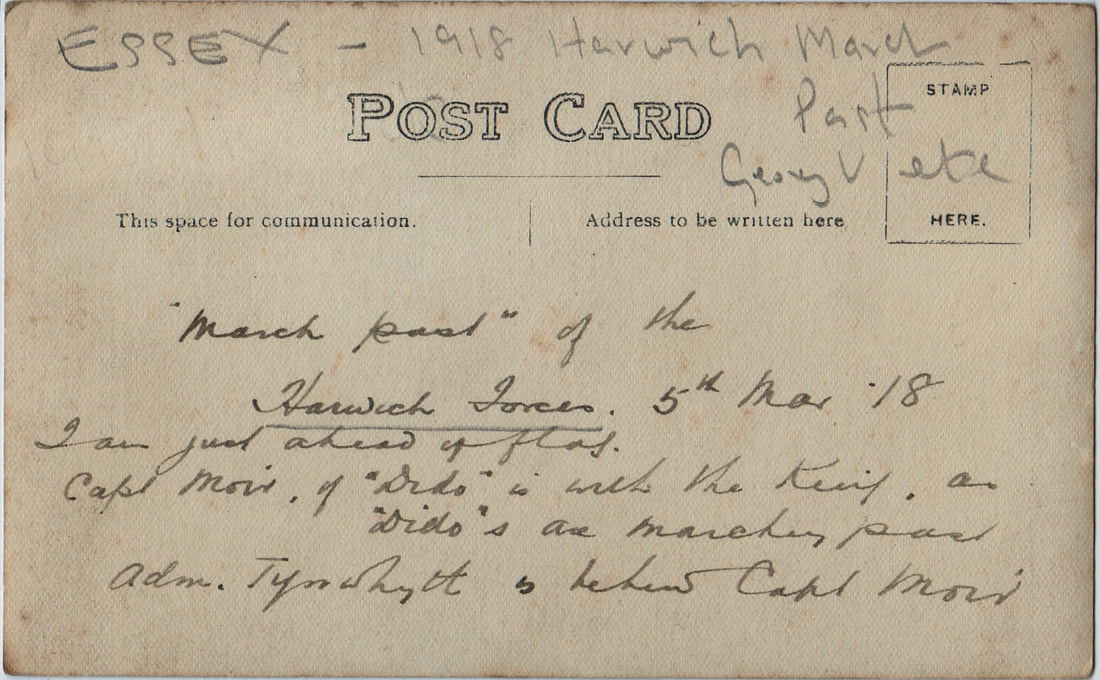 ESSEX - 1918 Harwich March
Past
George V etc
POST CARD
STAMP
HERE.
This space for communication.
Address to be written here
"March past" of the
Harwich Forces. 5th Mar '18
I am just ahead of flag.
Capt Moir, of "Dido" is with the King, as
"Dido"s are marching past
Adm. Tyrwhytt is behind Capt Moir